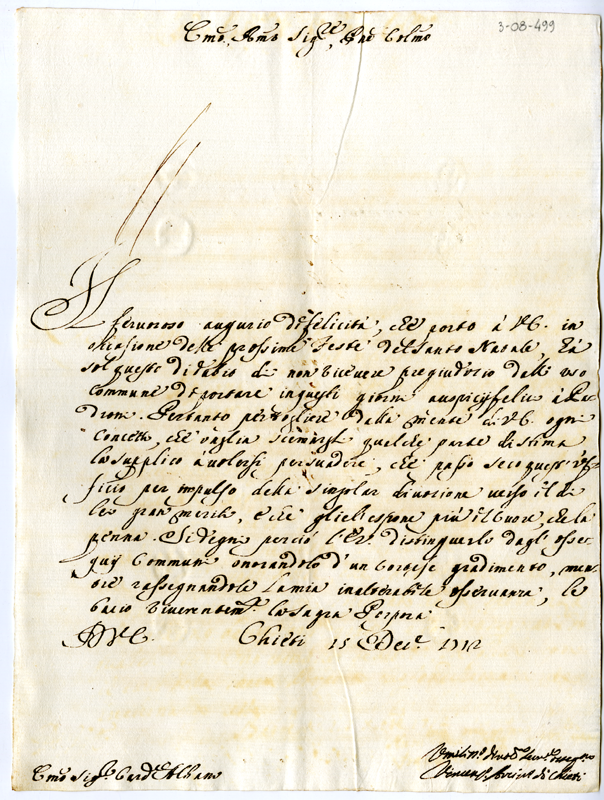 3-08-499
Emo, Rmo Sig.re, Pne Colmo
Il fervoroso augurio di felicità, che porto à V.E. in
occasione delle prossime Feste del Santo Natale, hà
sol questo di debito di non ricevere pregiudizio dall uso
commune di portare in questi giorni auspicij felici à Pa-
droni. Pertanto per togliere dalla mente di V.E. ogni
concetto, che vaglia scemargli qualche parte di stima
la supplico à volersi persuadere, che passo seco quest'uf-
ficio per impulso della singolar divozione verso il di
lei gran merito, e che gliel'espone più il Cuore, che la
penna. Si degni perciò l'E.V. distinguerlo dagl'osse-
quij communi onorandolo d'un cortese gradimento, men-
tre rassegnandole la mia inalterabile osservanza, le
bacio riverentem.te la Sagra Porpora
D. V.E. Chieti 15 Dec.e 1712
Emo Sig.r Card.e Albano
Umilis.o
Vincen.o Arciv.o di Chieti